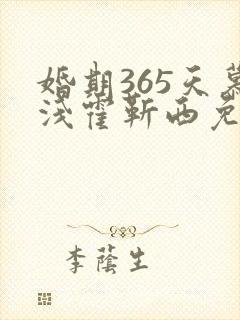 婚期365天慕
浅霍靳西免
李荫生